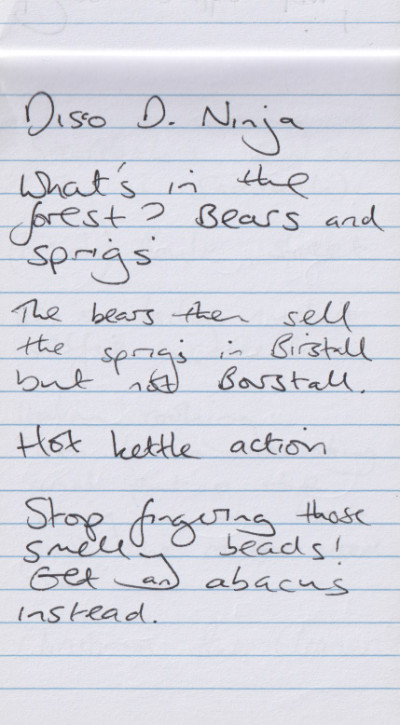 Disco D. Ninja
What's in the
forest? Bears and
sprigs
The bears then sell
the sprigs in Birstall
but not Borstall.
Hot kettle action
Stop fingering those
smelly beads!
Get an abacus
instead.